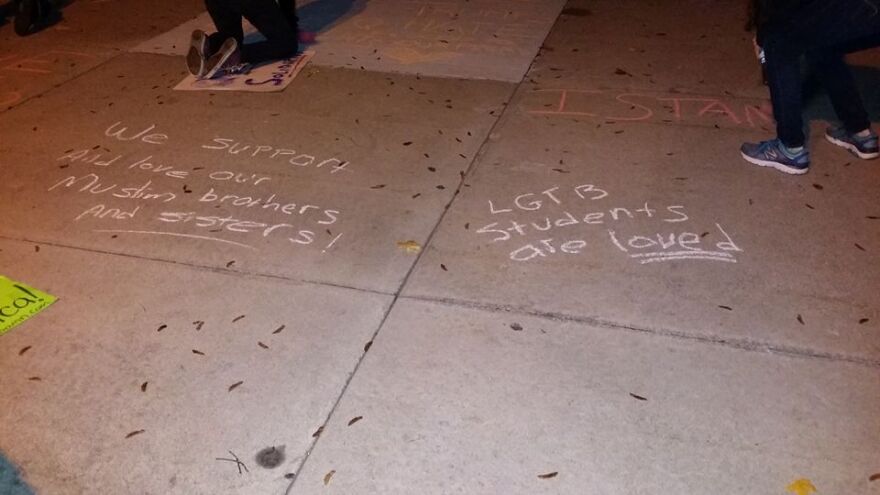 I STAN
We support
And love our
Muslim brothers
And sisters!
LGTB
Students
are loved
ica!